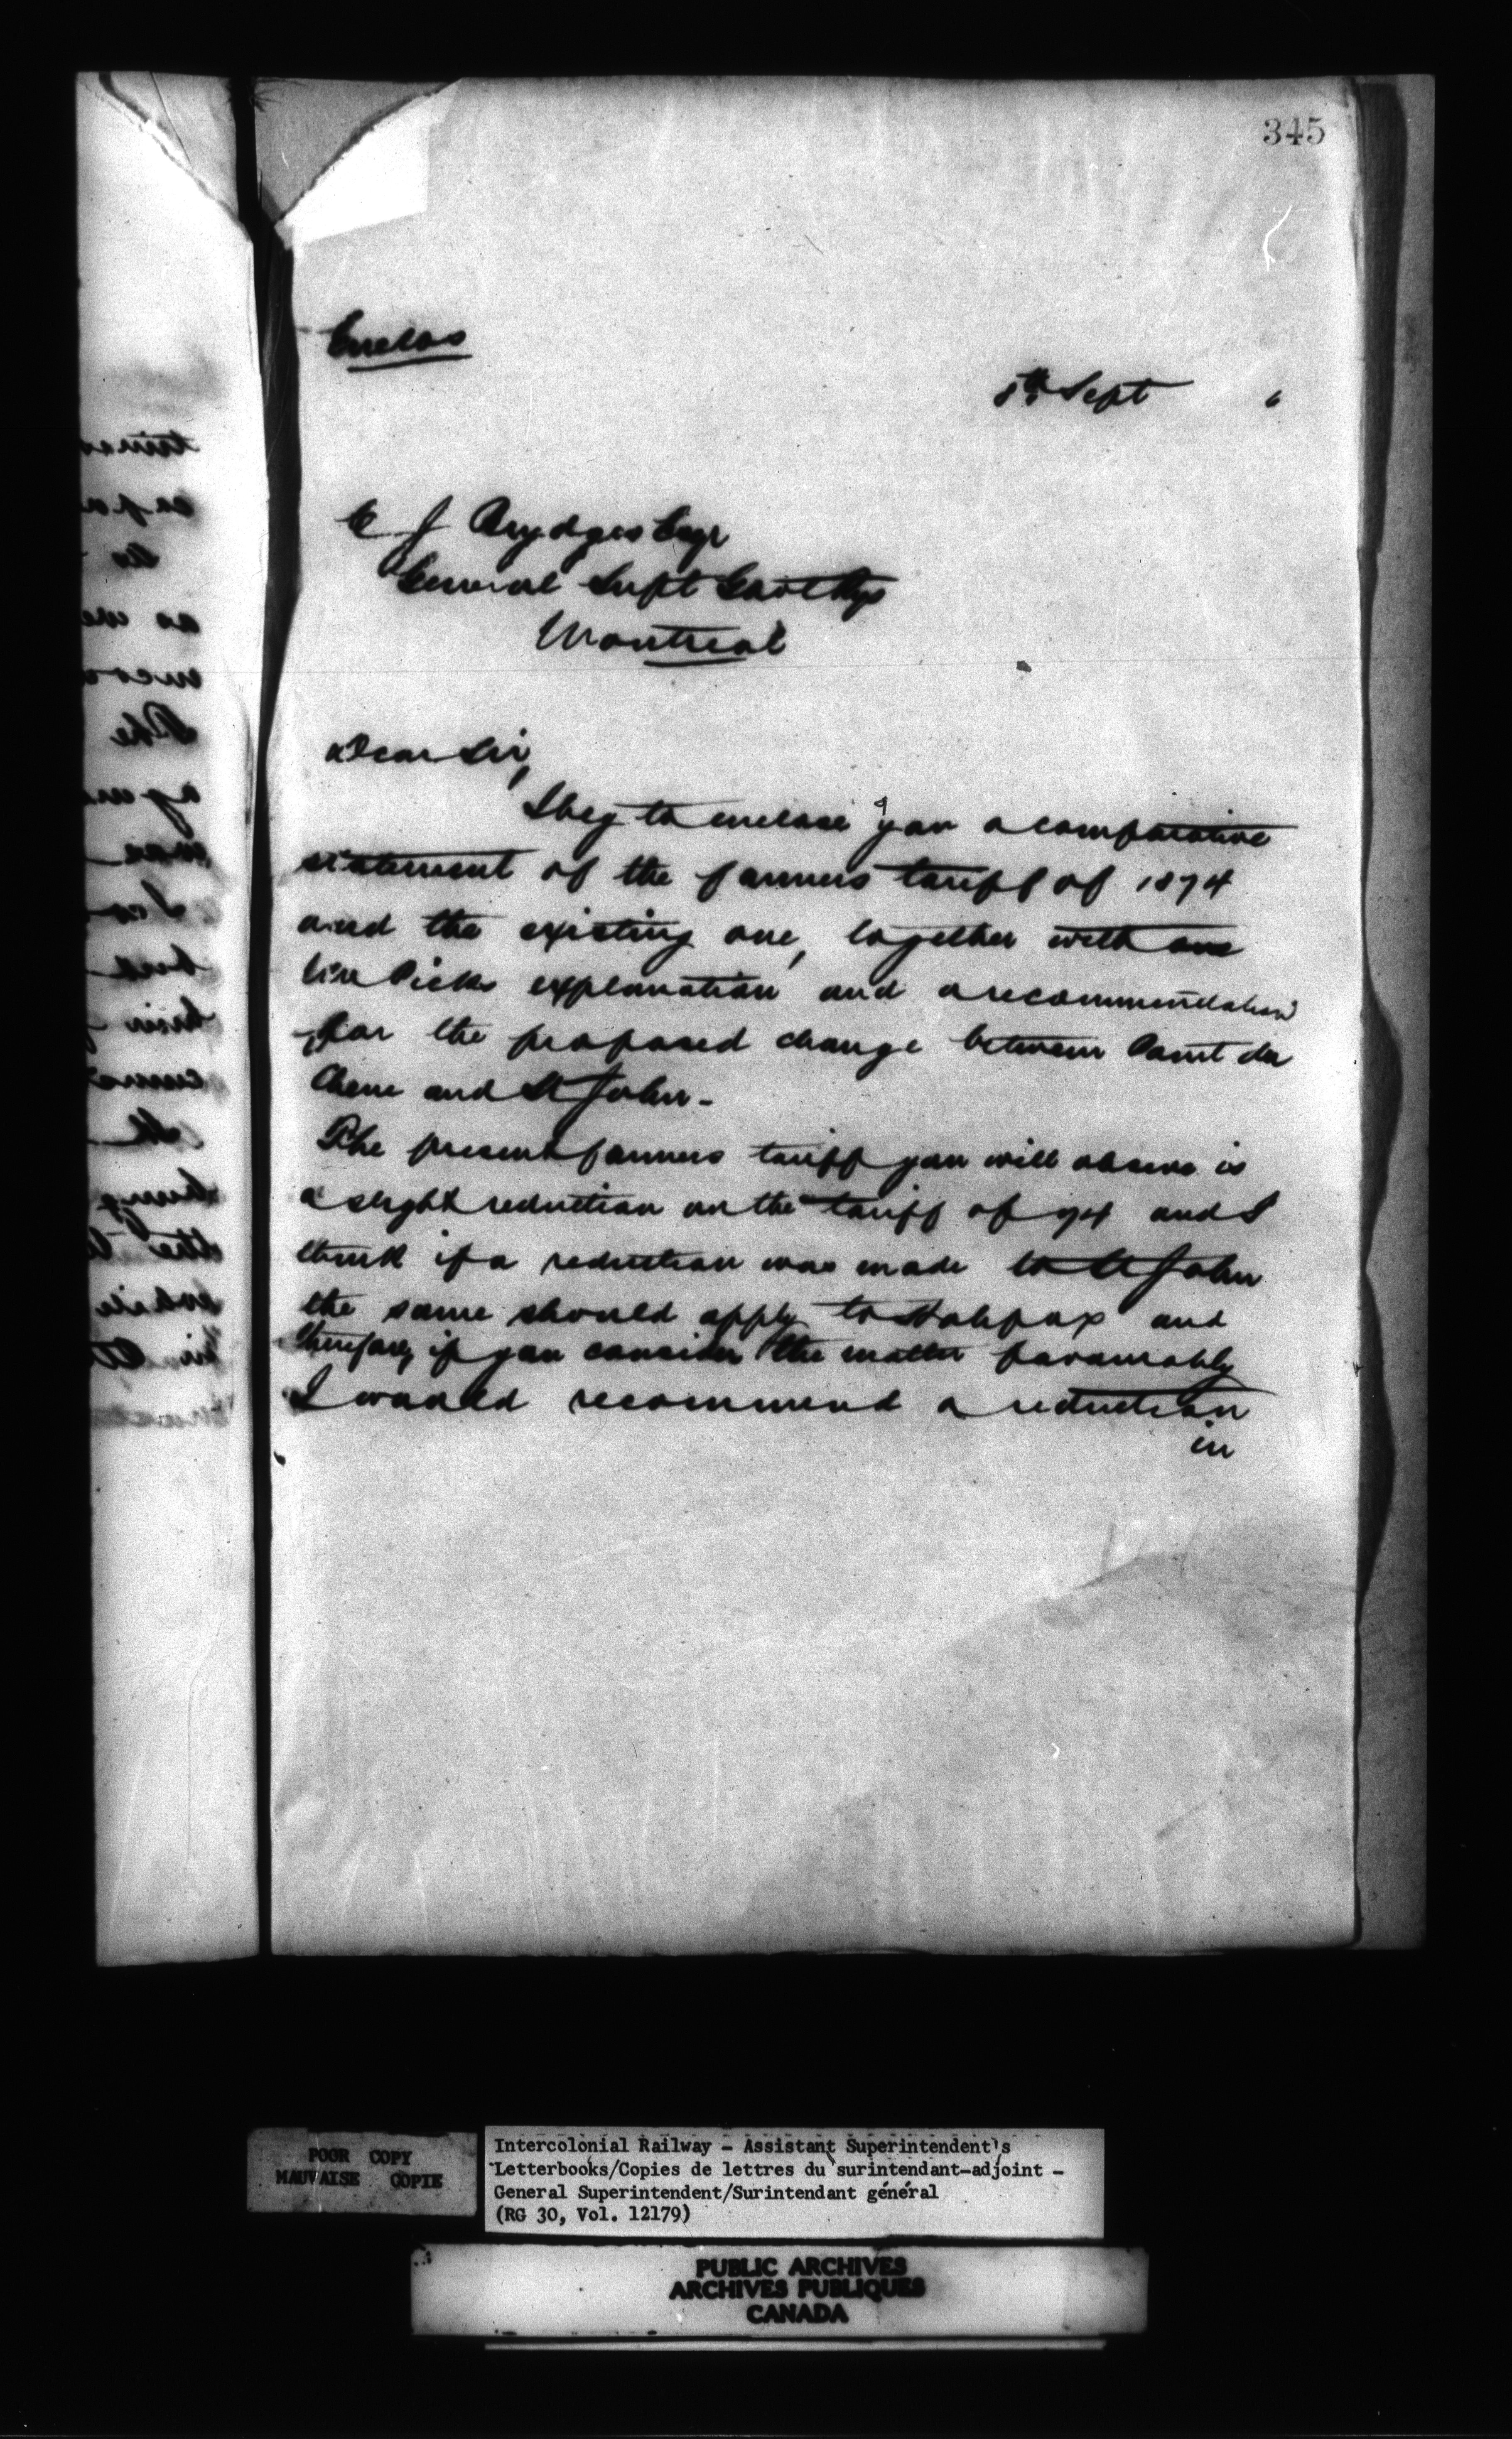 345
Enclos
5th Sept 6
C J Brydges Esqr
General Supt Govt Rys
Montreal
Dear Sir,
I beg to enclose you a comparative
statement of the farmers tariff of 1874
and the existing one, together with
explanation and a recommendation
for the proposed change between Point du
Chene and St John -
The present farmers tariff you will observe is
a slight reduction on the tariff of 74 and I
think if a reduction was made to St John
the same should apply to Halifax and
therefore, if you consider the matter favourably
I would recommend a reduction
in
POOR COPY
MAUVAISE COPIE
Intercolonial Railway - Assistant Superintendent's
Letterbooks/Copies de lettres du surintendant-adjoint -
General Superintendent/Surintendant général
(RG 30, Vol. 12179)
PUBLIC ARCHIVES
ARCHIVES PUBLIQUES
CANADA